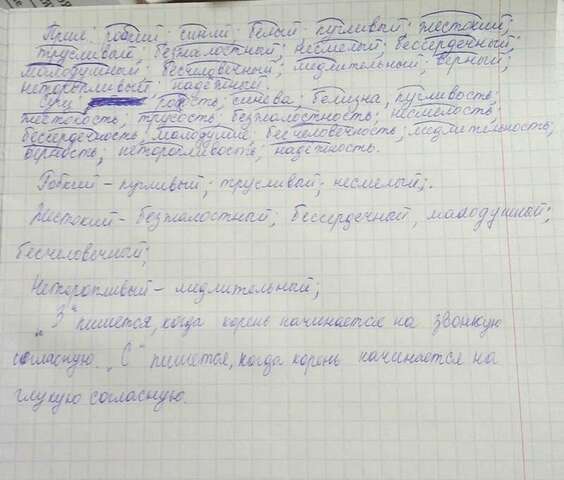 Прил. робкий; синий; белый; пугливый; жестокий;
трусливый; безжалостный; несмелый; бессердечный;
малодушный; бесчеловечный; медлительный; верный;
неторопливый; надёжный.
Сущ. робость; синева; белизна, пугливость;
жестокость; трусость; безжалостность; несмелость;
бессердечность, малодушие; бесчеловечность; медлительность;
верность; неторопливость; надёжность.
Робкий – пугливый; трусливый; несмелый;.
Жестокий – безжалостный; бессердечный, малодушной;
бесчеловечной;
Неторопливый – медлительный;
„З" пишется, когда корень начинается на звонкую
согласную. „С" пишется, когда корень начинается на
глухую согласную.